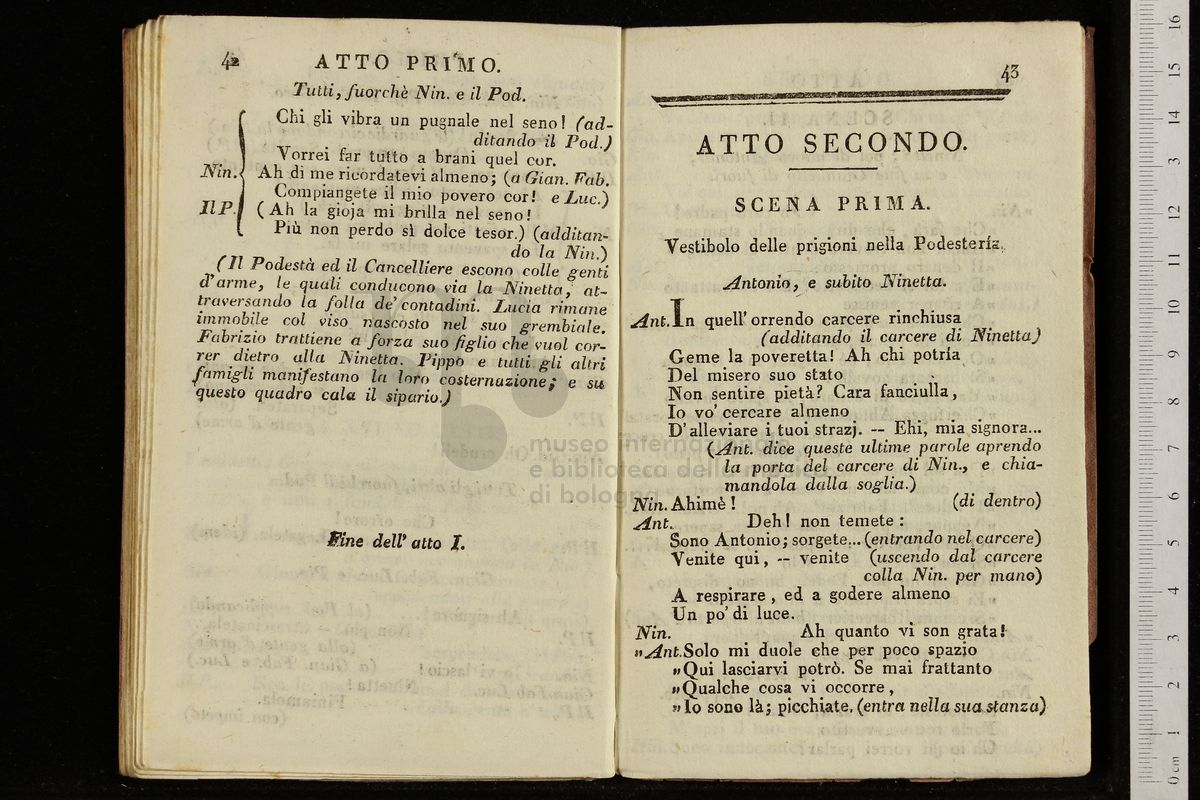 42 ATTO PRIMO.
Tutti, fuorchè Nin. e il Pod.
Chi gli vibra un pugnale nel seno! (ad-
ditando il Pod.)
Vorrei far tutto a brani quel cor.
Nin. Ah di me ricordatevi almeno; (a Gian. Fab.
Compiangete il mio povero cor! e Luc.)
Il P. (Ah la gioja mi brilla nel seno!
Più non perdo sì dolce tesor.) (additan-
do la Nin.)
(Il Podestà ed il Cancelliere escono colle genti
d'arme, le quali conducono via la Ninetta, at-
traversando la folla de' contadini. Lucia rimane
immobile col viso nascosto nel suo grembiale.
Fabrizio trattiene a forza suo figlio che vuol cor-
rer dietro alla Ninetta. Pippo e tutti gli altri
famigli manifestano la loro costernazione; e su
questo quadro cala il sipario.)
Fine dell' atto I.
43
ATTO SECONDO.
SCENA PRIMA.
Vestibolo delle prigioni nella Podestería.
Antonio, e subito Ninetta.
Ant. In quell' orrendo carcere rinchiusa
(additando il carcere di Ninetta)
Geme la poveretta! Ah chi potría
Del misero suo stato
Non sentire pietà? Cara fanciulla,
Io vo' cercare almeno
D'alleviare i tuoi strazj. -- Ehi, mia signora...
(Ant. dice queste ultime parole aprendo
la porta del carcere di Nin., e chia-
mandola dalla soglia.)
Nin. Ahimè! (di dentro)
Ant. Deh! non temete:
Sono Antonio; sorgete... (entrando nel carcere)
Venite qui, -- venite (uscendo dal carcere
colla Nin. per mano)
A respirare, ed a godere almeno
Un po' di luce.
Nin. Ah quanto vi son grata!
„Ant. Solo mi duole che per poco spazio
„Qui lasciarvi potrò. Se mai frattanto
„Qualche cosa vi occorre,
„Io sono là; picchiate. (entra nella sua stanza)
museo internazionale
e biblioteca della musica
di bologna
0 cm 1 2 3 4 5 6 7 8 9 10 11 12 13 14 15 16